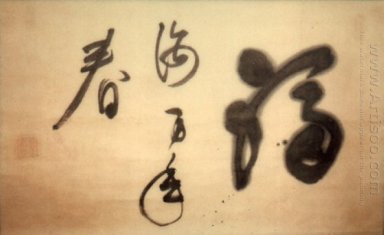 福
海万年
春
www.Artisoo.com